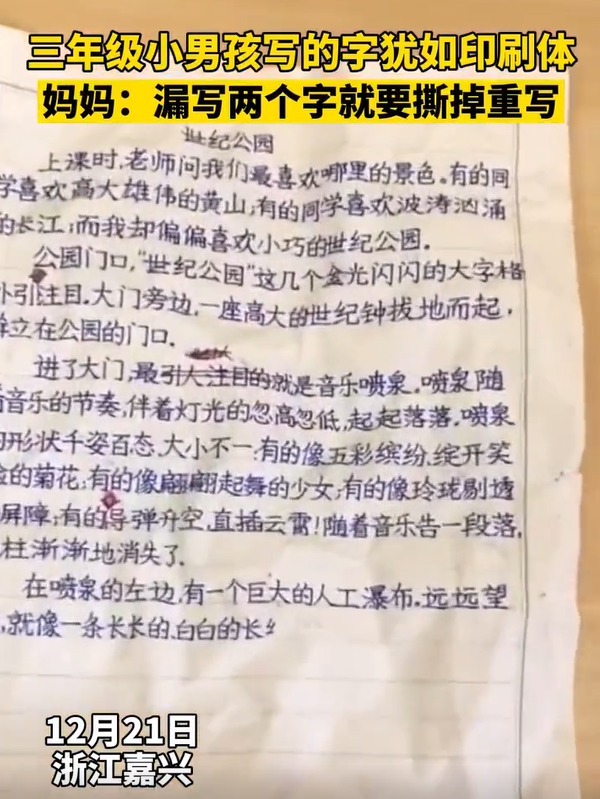 三年级小男孩写的字犹如印刷体
妈妈：漏写两个字就要撕掉重写
世纪公园
上课时,老师问我们最喜欢哪里的景色。有的同
学喜欢高大雄伟的黄山;有的同学喜欢波涛汹涌
的长江;而我却偏偏喜欢小巧的世纪公园。
公园门口,“世纪公园”这几个金光闪闪的大字格
外引注目.大门旁边,一座高大的世纪钟拔地而起,
立在公园的门口.
进了大门,最引人注目的就是音乐喷泉.喷泉随
着音乐的节奏,伴着灯光的忽高忽低,起起落落.喷泉
的形状千姿百态.大小不一:有的像五彩缤纷,绽开笑
脸的菊花;有的像翩翩起舞的少女;有的像玲珑剔透
屏障;有的导弹升空,直插云霄!随着音乐告一段落,
柱渐渐地消失了.
在喷泉的左边,有一个巨大的人工瀑布.远远望
,就像一条长长的.白白的长
12月21日
浙江嘉兴